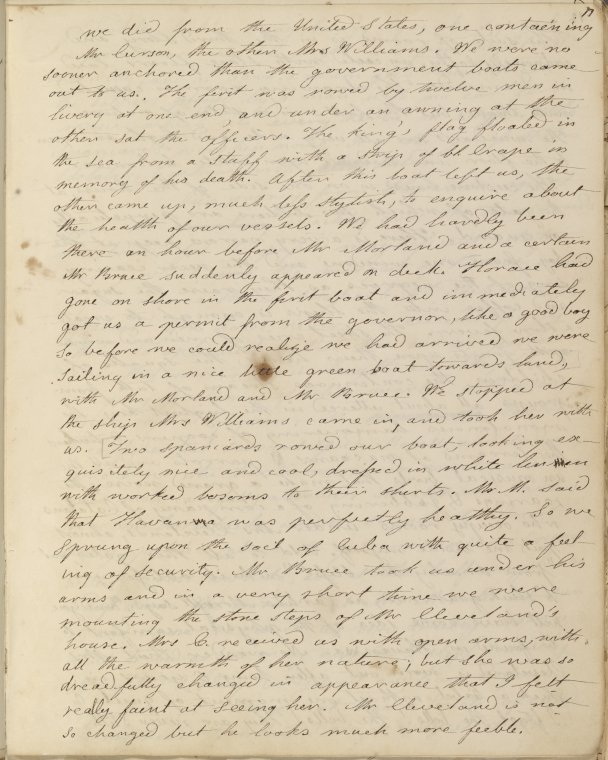 we died from the United States, one containing
Mr Curson, the other Mrs Williams. We were no
sooner anchored than the government boats came
out to us. The first was rowed by twelve men in
livery at one end, and under an awning at the
other sat the officers. The king's flag floated in
the sea from a staff with a strip of bl Crape in
memory of his death. After this boat left us, the
other came up, much less stylish, to enquire about
the health of our vessels. We had hardly been
there an hour before Mr Morland and a certain
Mr Bruce suddenly appeared on deck. Horace had
gone on shore in the first boat and immediately
got us a permit from the governor, like a good boy
so before we could realize we had arrived we were
sailing in a nice little green boat towards land,
with Mr Morland and Mr Bruce. We stopped at
the ship Mrs Williams came in, and took her with
us. Two spaniards rowed our boat, looking ex-
quisitely nice and cool, dressed in white linnen
with worked bosoms to their shirts. Mr M. said
that Havanna was perfectly healthy. So we
sprung upon the soil of Cuba with quite a feel-
ing of security. Mr Bruce took us under his
arms and in a very short time we were
mounting the stone steps of Mr Cleveland's
house. Mrs C. received us with open arms, with
all the warmth of her nature; but she was so
dreadfully changed in appearance that I felt
really faint at seeing her. Mr Cleveland is not
so changed but he looks much more feeble.